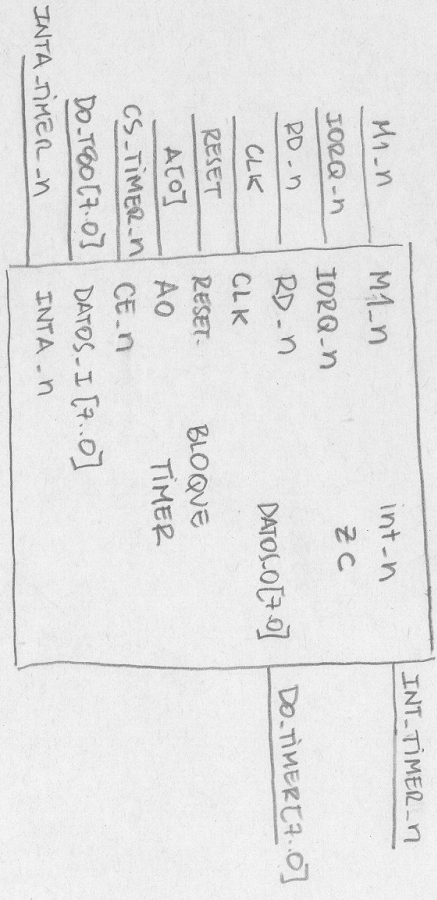 M1_n
IORQ_n
RD_n
CLK
RESET
A[0]
CS_TiMER_n
DO_T80[7..0]
INTA_TiMER_n
M1_n
IORQ_n
RD_n
CLK
RESET
A0
CE_n
DATOS_I[7..0]
INTA_n
BLOQUE
TiMER
int_n
ZC
DATOS_O[7..0]
INT_TiMER_n
DO_TiMER[7..0]